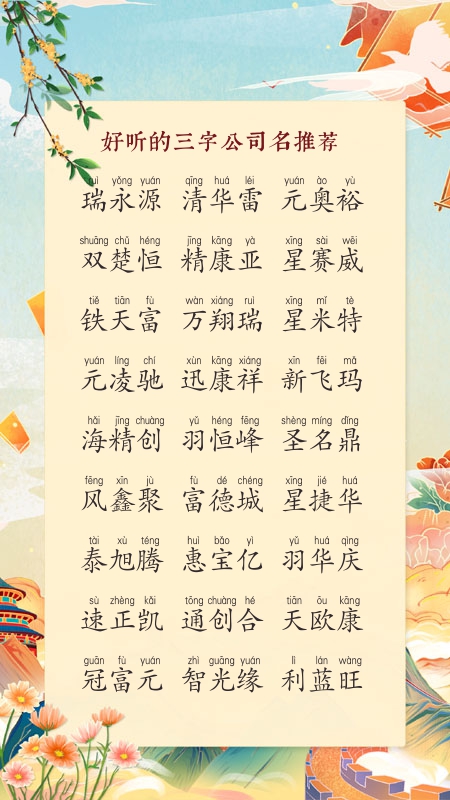 好听的三字公司名推荐
uì yǒng yuán qīng huá léi yuán ào yù
瑞永源 清华雷 元奥裕
shuāng chǔ héng jīng kāng yà xīng sài wēi
双楚恒 精康亚 星赛威
tiě tiān fù wàn xiáng ruì xīng mǐ tè
铁天富 万翔瑞 星米特
yuán líng chí xùn kāng xiáng xīn fēi mǎ
元凌驰 迅康祥 新飞玛
hǎi jīng chuàng yǔ héng fēng shèng míng dǐng
海精创 羽恒峰 圣名鼎
fēng xīn jù fù dé chéng xīng jié huá
风鑫聚 富德城 星捷华
tài xù téng huì bǎo yì yǔ huá qìng
泰旭腾 惠宝亿 羽华庆
sù zhèng kǎi tōng chuàng hé tiān ōu kāng
速正凯 通创合 天欧康
guān fù yuán zhì guāng yuán lì lán wàng
冠富元 智光缘 利蓝旺